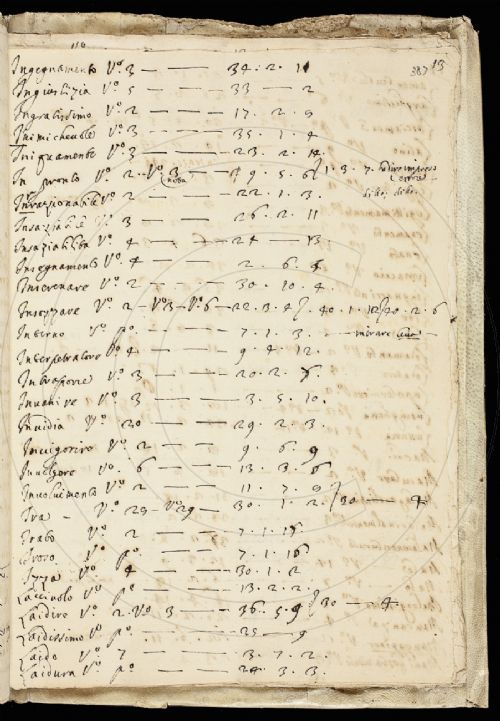 116
387 13
Ingegnamento Vº. 3 — — 34. 2. 11
Ingiustizia Vº 5 — — 33 — 2
Ingratissimo Vº 2 — — 17. 2. 9
Inimichevole Vº 3 — — 35. 1. 4
Iniquamente Vº. 3 — — 23. 2. 12
In pronto Vº 2. Vº. 3 — 9. 5. 6 1. 3. 7.
Inrazionabile Vº 2 — — 22. 1. 3.
Insaziabile Vº 3 — — 26. 2. 11
Insaziabilità Vº 4 — — 24 — 13
Insegnamento Vº. 4 — — 2. 6. 5
Intenerare Vº 2 — — 30. 10. 4.
Intezzare Vº 2 — Vº 3 — Vº 6 — 22. 3. 4 40. 1. 12 20. 2. 6
Interno Vº pº — — 7. 1. 3.
Interpetratore Vº 4 — — 9. 4. 12.
Intrasione Vº. 3 — — 20. 2.
Invanire Vº 3 — — 3. 5. 10.
Invidia Vº. 20 — — 29. 2. 3.
Invigorire Vº. 2 — — 9. 6. 9
Vº. 6 — — 13. 3. 6
Involvimento Vº 2 — — 11. 7. 9
Ira — Vº. 29 — Vº 29 — 30. 1. 2. 30 — 4
Vº 2 — — 7. 1. 15
Vº. pº. — — 7. 1. 16
Izza Vº 4 — — 30. 1. 2
Lacciuolo Vº pº — — 13. 2. 2.
Laidire Vº. 2. Vº 3 — 36. 5. 9 30 — 4.
Laidissimo Vº pº. — — 25 — 9
Laido Vº 7 — — 3. 7. 2.
Laidura Vº. pº — — 24. 3. 3.